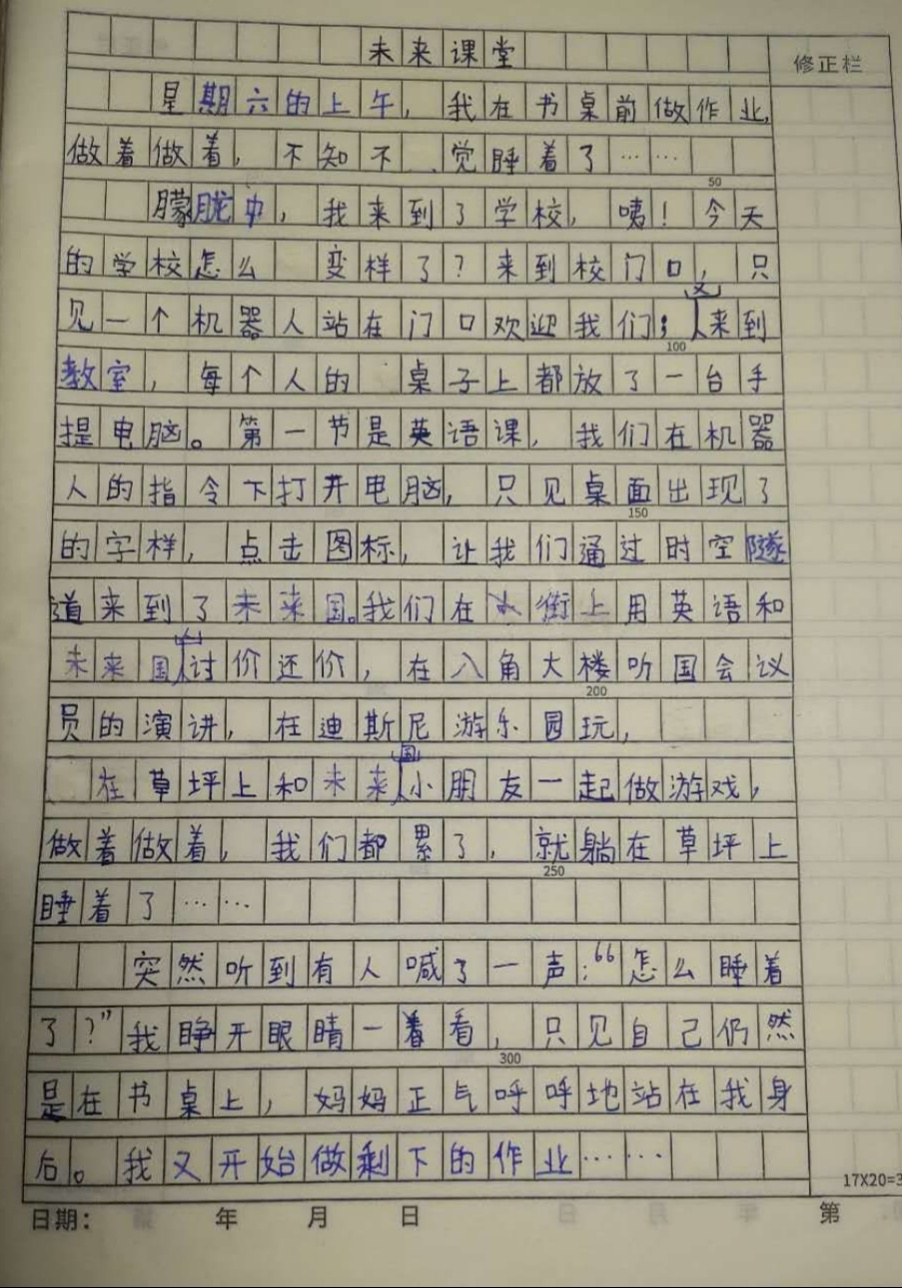 未来课堂
修正栏
星期六的上午，我在书桌前做作业，
做着做着，不知不觉睡着了……
50
朦胧中，我来到了学校，咦！今天
的学校怎么变样了？来到校门口，只
见一个机器人站在门口欢迎我们；又来到
100
教室，每个人的桌子上都放了一台手
提电脑。第一节是英语课，我们在机器
人的指令下打开电脑，只见桌面出现了
150
的字样，点击图标，让我们通过时空隧
道来到了未来国。我们在街上用英语和
未来国人讨价还价，在八角大楼听国会议
200
员的演讲，在迪斯尼游乐园玩，
在草坪上和未来国小朋友一起做游戏，
做着做着，我们都累了，就躺在草坪上
250
睡着了……
突然听到有人喊了一声：“怎么睡着
了？”我睁开眼睛一着看，只见自己仍然
300
是在书桌上，妈妈正气呼呼地站在我身
后。我又开始做剩下的作业……
17X20=3
日期： 年 月 日 第